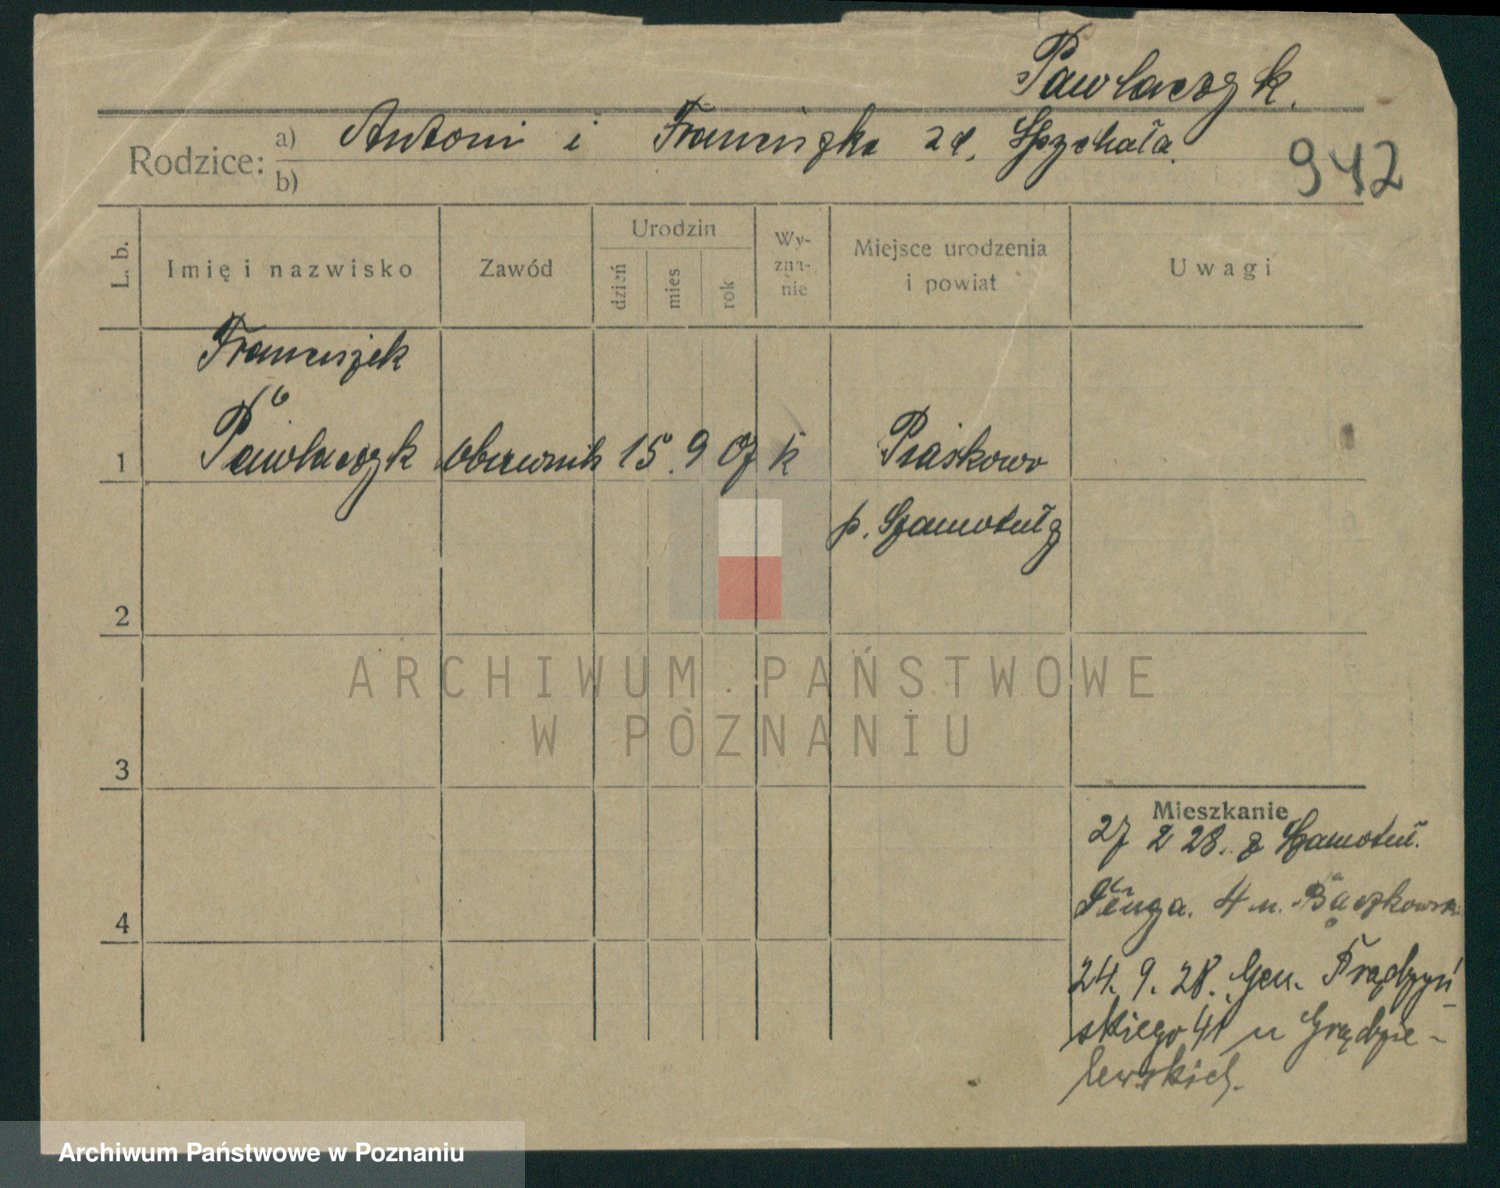 Pawlaczyk.
Rodzice: a) Antoni i Franciszka zd. Spychała.
b)
942
L. b.
Imię i nazwisko
Zawód
Urodzin
dzień
mies
rok
Wy-
zna-
nie
Miejsce urodzenia
i powiat
Uwagi
Franciszek
1 Pawlaczyk 15. 9 07 k Piaskowo
p. Szamotuły
2
3
4
ARCHIWUM PAŃSTWOWE
W POZNANIU
Mieszkanie
27 2 28. z Szamotuł.
4 u. Bączkowsk
24. 9. 28. Gen. Prądzyń
skiego 41 u Grądzie-
lewskich.
Archiwum Państwowe w Poznaniu